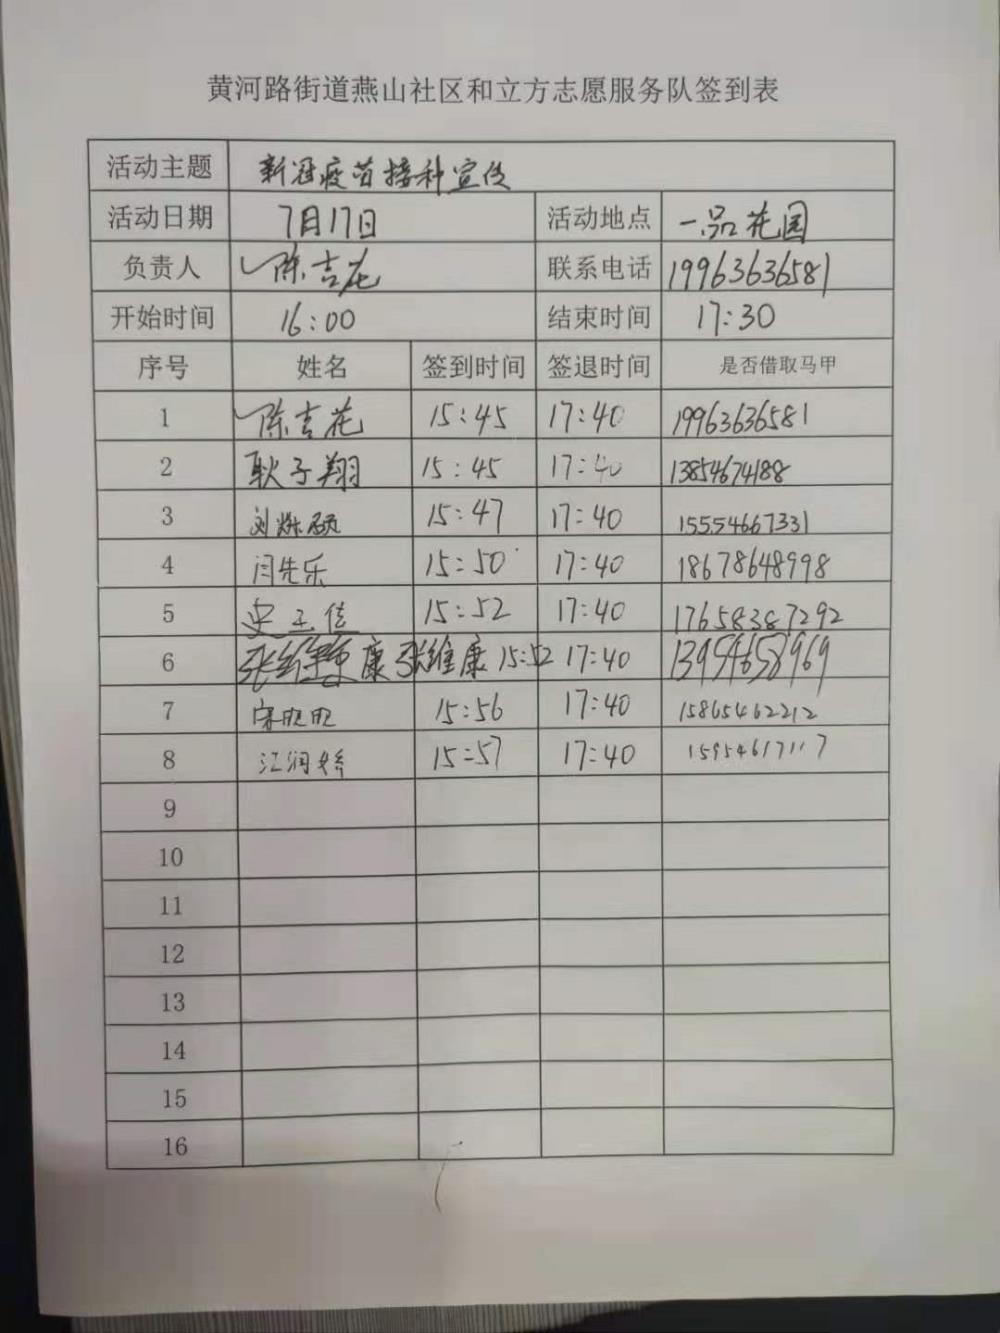 黄河路街道燕山社区和立方志愿服务队签到表
活动主题 新冠疫苗接种宣传
活动日期 7月17日 活动地点 一品花园
负责人 陈吉花 联系电话 19963636581
开始时间 16:00 结束时间 17:30
序号 姓名 签到时间 签退时间 是否借取马甲
1 陈吉花 15:45 17:40 19963636581
2 耿子翔 15:45 17:40 13854674188
3 15:47 17:40 15554667331
4 闫先乐 15:50 17:40 18678648998
5 史玉佳 15:52 17:40 17658387292
6 张维康 15:52 17:40 13954658969
7 15:56 17:40 15865462212
8 江润婷 15:57 17:40 15954617117
9
10
11
12
13
14
15
16